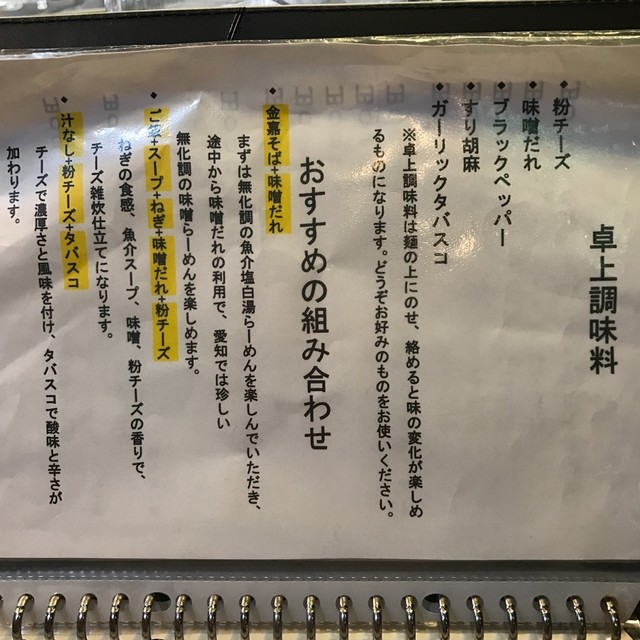 卓上調味料
・粉チーズ
・味噌だれ
・ブラックペッパー
・すり胡麻
・ガーリックタバスコ
※卓上調味料は麺の上にのせ、絡めると味の変化が楽しめ
るものになります。どうぞお好みのものをお使いください。
おすすめの組み合わせ
・金嘉そば+味噌だれ
まずは無化調の魚介塩白湯らーめんを楽しんでいただき、
途中から味噌だれの利用で、愛知では珍しい
無化調の味噌らーめんを楽しめます。
・ご飯+スープ+ねぎ+味噌だれ+粉チーズ
ねぎの食感、魚介スープ、味噌、粉チーズの香りで、
チーズ雑炊仕立てになります。
・汁なし+粉チーズ+タバスコ
チーズで濃厚さと風味を付け、タバスコで酸味と辛さが
加わります。